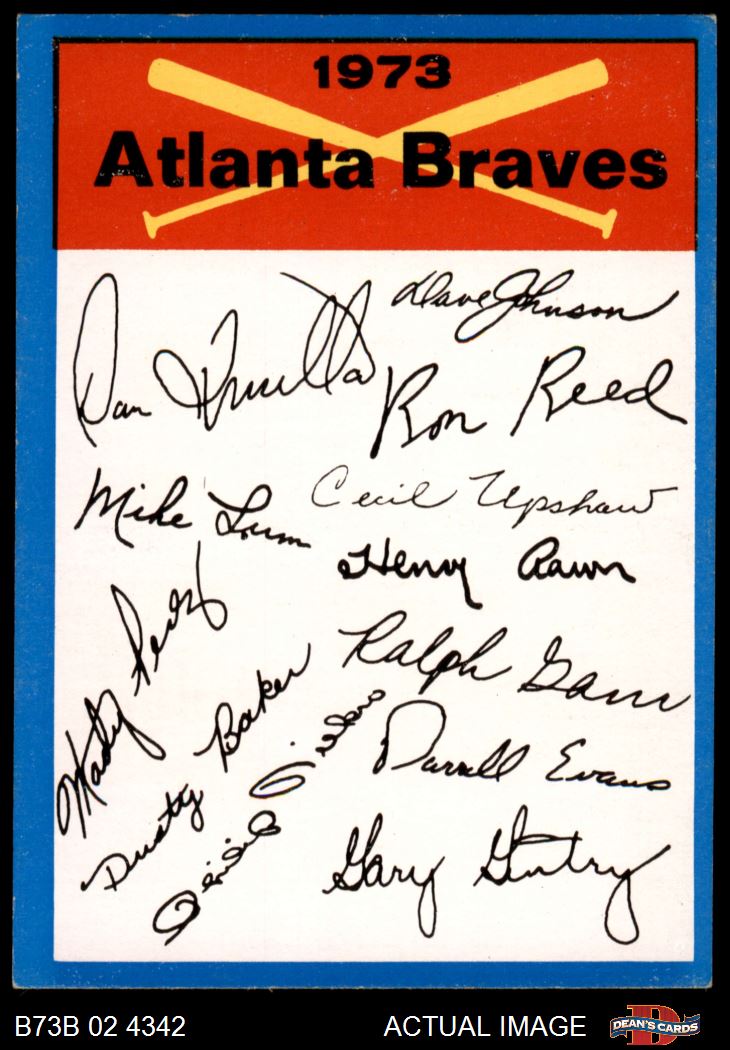 1973
Atlanta Braves
Dave Johnson
Dan
Ron Reed
Mike Lum
Cecil Upshaw
Henry Aaron
Marty Perez
Ralph Garr
Dusty Baker
Darrell Evans
Gary Gentry
B73B 02 4342
ACTUAL IMAGE
DEAN'S CARDS